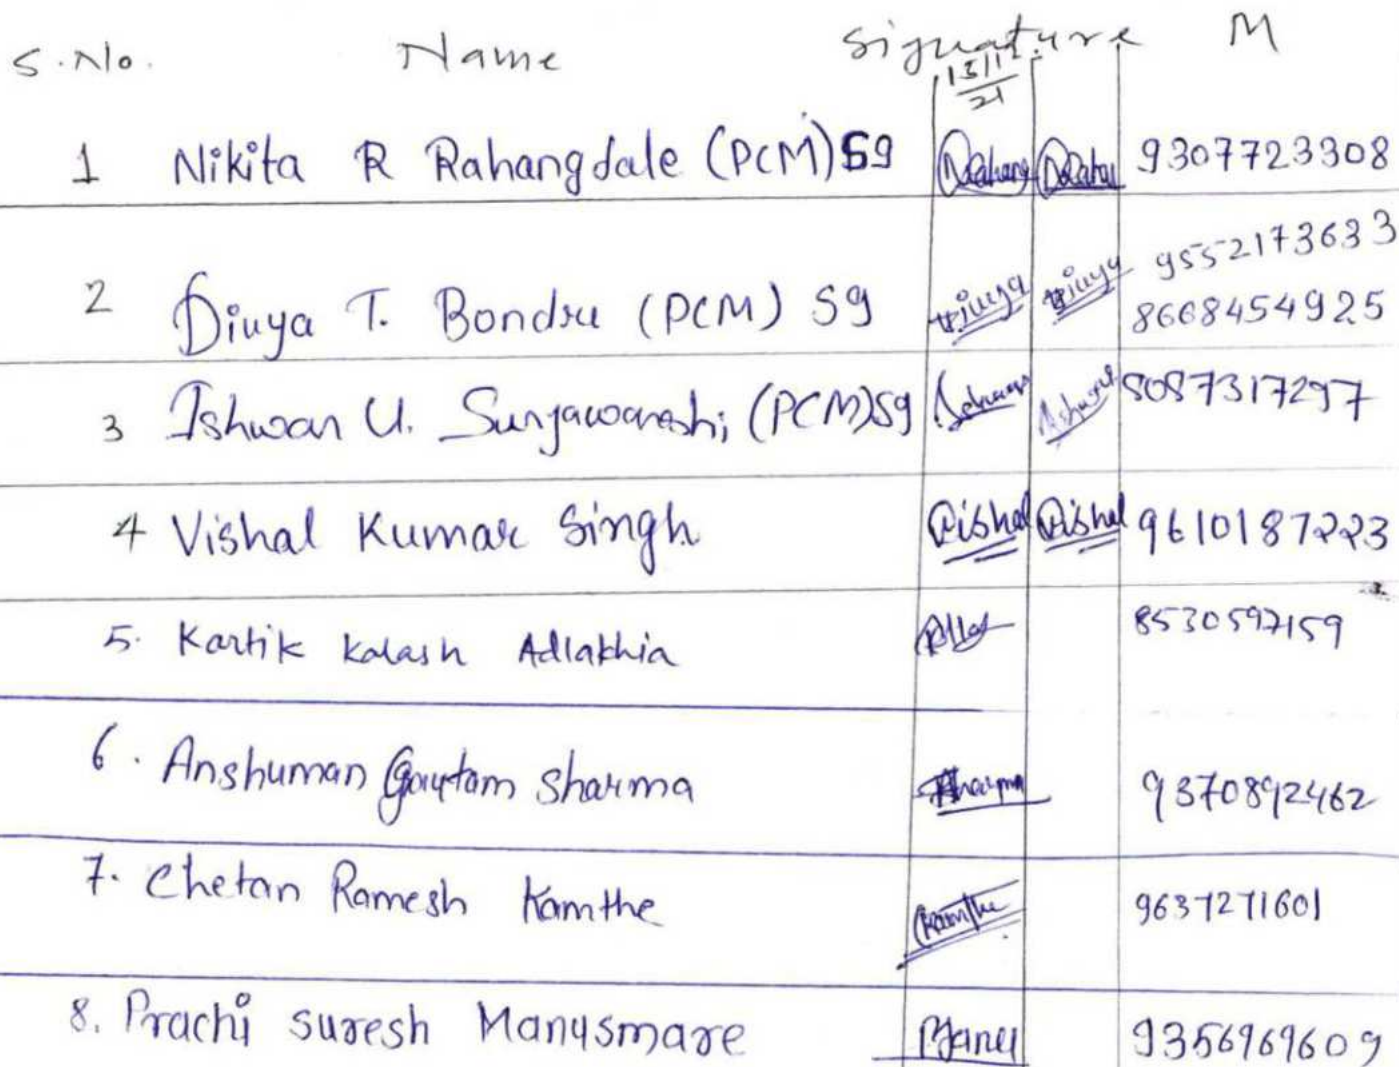 S.No. Name Signature M
13/12
21
1 Nikita R Rahangdale (PCM) S9 9307723308
2 Divya T. Bondre (PCM) S9 Divya Divya 9552173633
8668454925
3 Ishwar U. Suryawanshi (PCM) S9 Ishwar 8087317297
4 Vishal Kumar Singh Vishal Vishal 9610187223
5. Kartik Kalash Adlakhia 8530597159
6. Anshuman Gautam Sharma Sharma 9370892462
7. Chetan Ramesh Kamthe Kamthe 9637271601
8. Prachi suresh Manusmare 9356969609